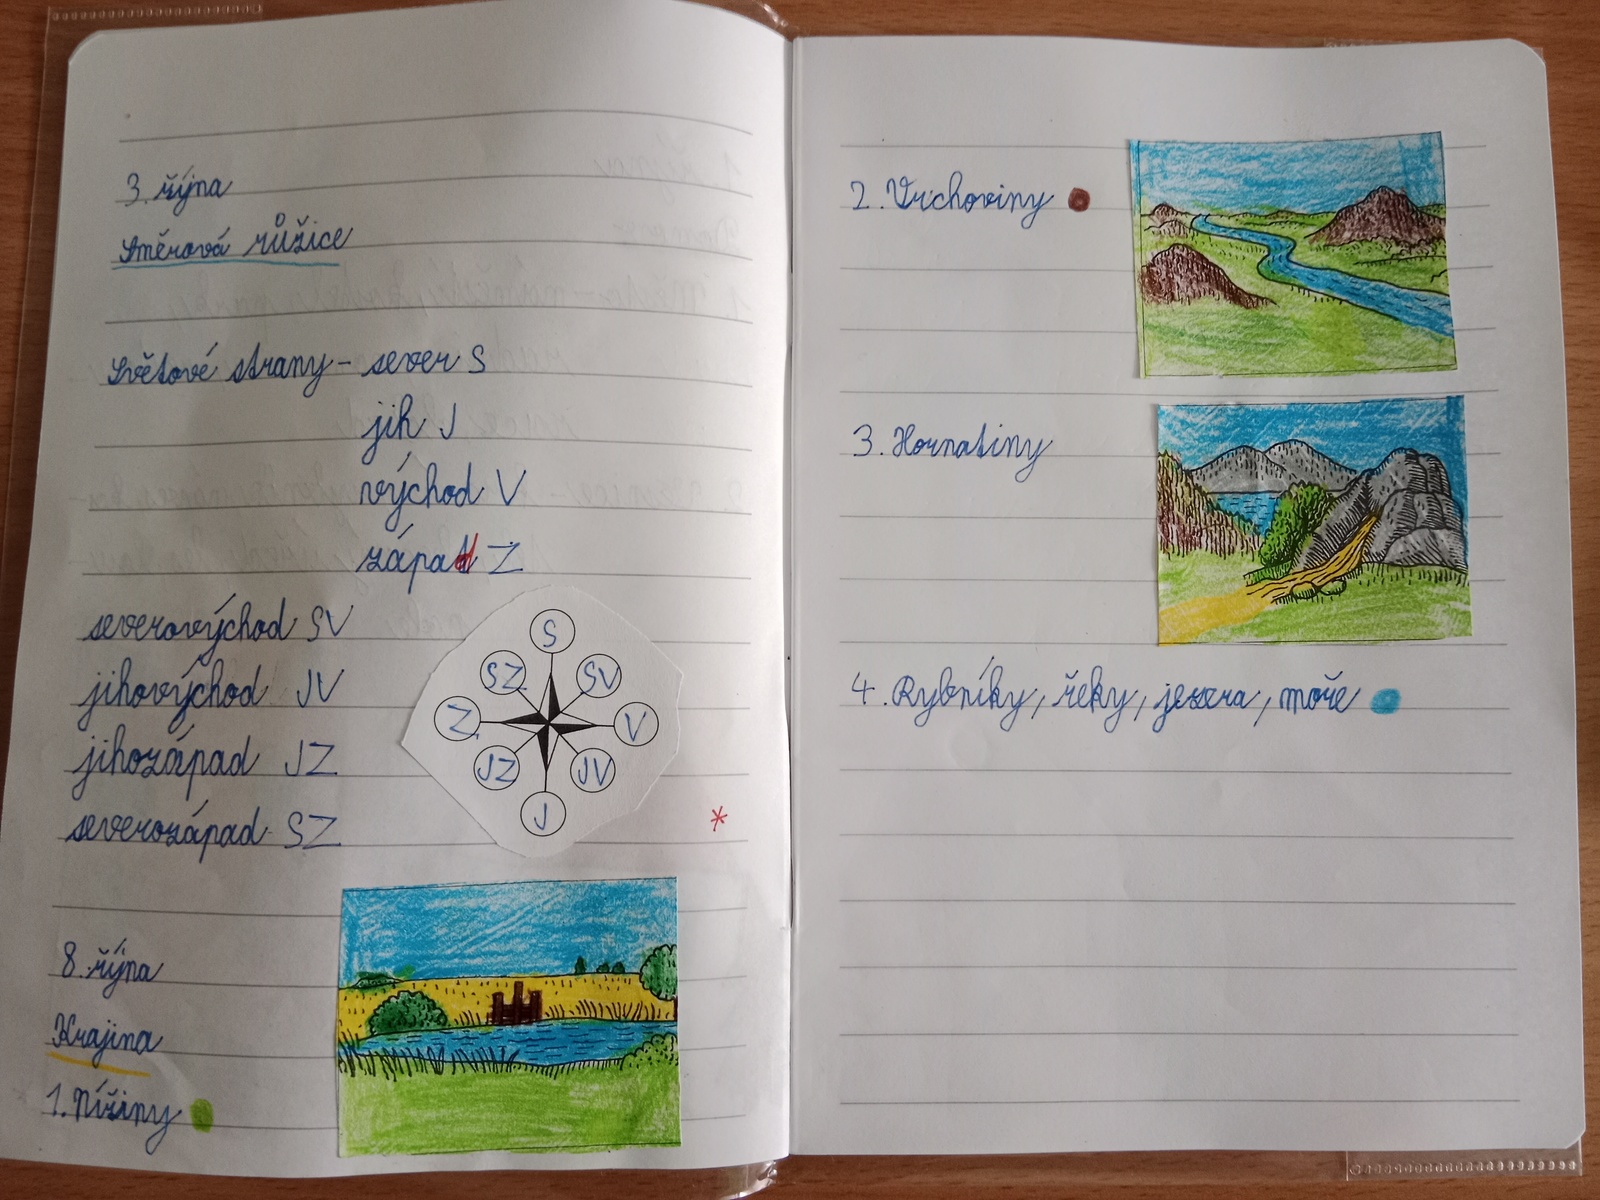 3. října
Směrová růžice
Světové strany - sever S
jih J
východ V
západ Z
severovýchod SV
jihovýchod JV
jihozápad JZ
severozápad SZ
S
SZ SV
Z V
JZ JV
J
*
8. října
Krajina
1. Nížiny
2. Vrchoviny
3. Hornatiny
4. Rybníky, řeky, jezera, moře